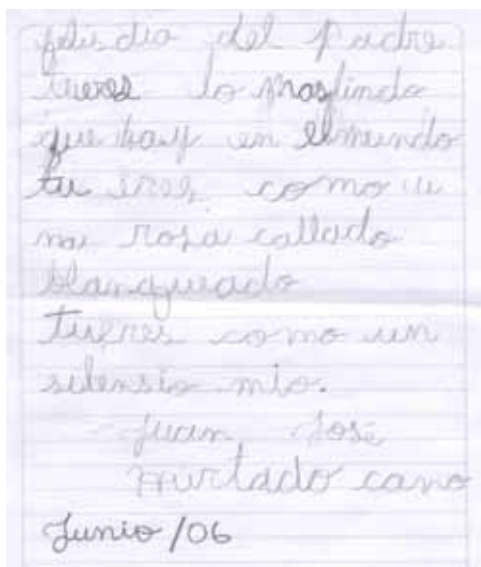 felis dia del padre
tueres lo maslindo
que hay en elmundo
tu eres como u
na rosa callado
blanqueado
tueres como un
silensio mio.
Juan José
Hurtado cano
Junio /06